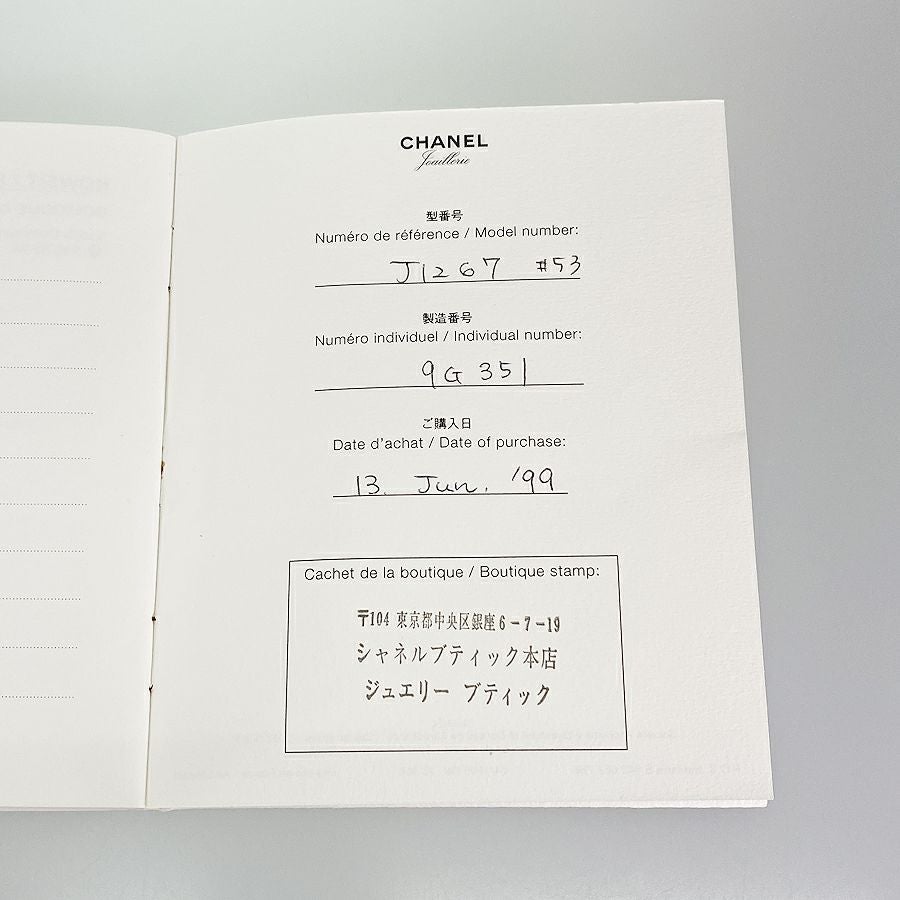 CHANEL
Joaillerie
型番号
Numéro de référence / Model number:
J1267 #53
製造番号
Numéro individuel / Individual number:
9G 351
ご購入日
Date d'achat / Date of purchase:
13. Jun. '99
Cachet de la boutique / Boutique stamp:
〒104 東京都中央区銀座6-7-19
シャネルブティック本店
ジュエリー ブティック